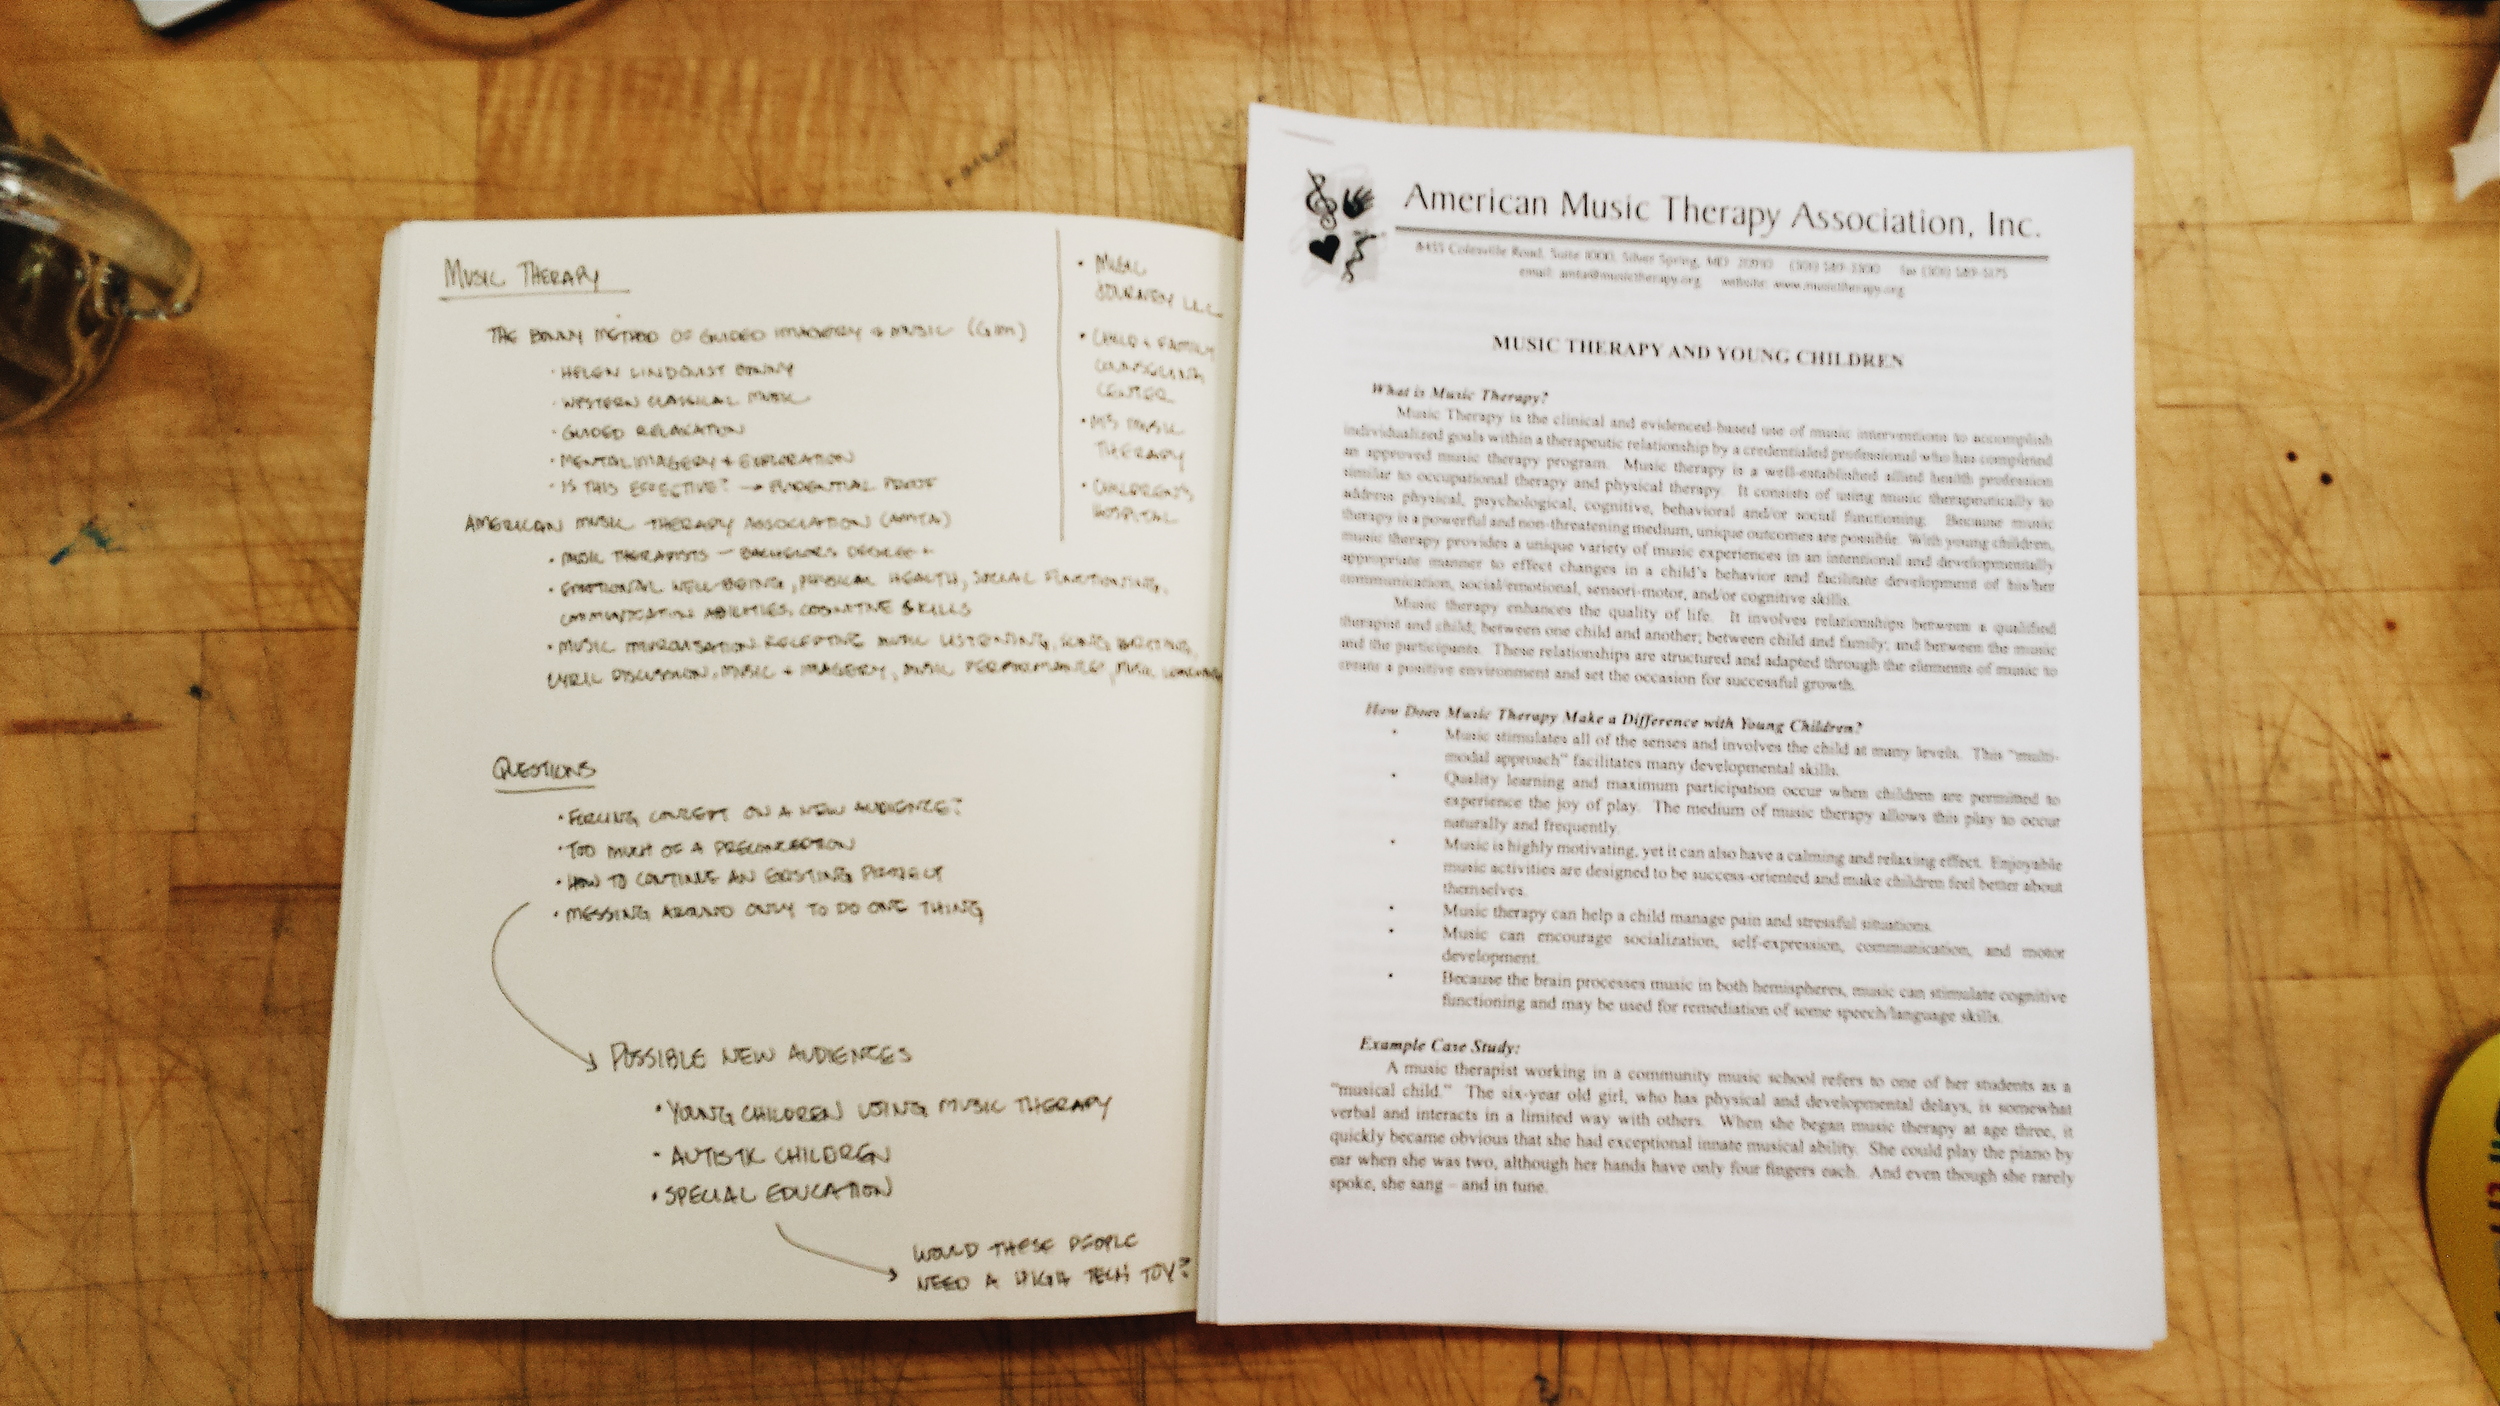 MUSIC THERAPY
THE BONNY METHOD OF GUIDED IMAGERY + MUSIC (GIM)
· HELEN LINDQUIST BONNY
· WESTERN CLASSICAL MUSIC
· GUIDED RELAXATION
· MENTAL IMAGERY + EXPLORATION
· IS THIS EFFECTIVE? → EVIDENTIAL PROOF
AMERICAN MUSIC THERAPY ASSOCIATION (AMTA)
· MUSIC THERAPISTS — BACHELORS DEGREE +
· EMOTIONAL WELL-BEING, PHYSICAL HEALTH, SOCIAL FUNCTIONING,
COMMUNICATION ABILITIES, COGNITIVE SKILLS
· MUSIC IMPROVISATION RECEPTIVE MUSIC LISTENING, SONG WRITING,
LYRIC DISCUSSION, MUSIC + IMAGERY, MUSIC PERFORMANCE, MUSIC
· MUSIC
JOURNEY LLC
· CHILD + FAMILY
COUNSELING
CENTER
MUSIC
THERAPY
· CHILDREN'S
HOSPITAL
QUESTIONS
· FORCING CONCEPT ON A NEW AUDIENCE?
· TOO MUCH OF A PRECONCEPTION
· HOW TO CONTINUE AN EXISTING PROJECT
· MESSING AROUND ONLY TO DO ONE THING
POSSIBLE NEW AUDIENCES
· YOUNG CHILDREN USING MUSIC THERAPY
- AUTISTIC CHILDREN
· SPECIAL EDUCATION
WOULD THESE PEOPLE
NEED A HIGH TECH TOY?
American Music Therapy Association, Inc.
8455 Colesville Road, Suite 1000, Silver Spring, MD 20910 (301) 589-3300 fax (301) 589-5175
email: amta@musictherapy.org website: www.musictherapy.org
MUSIC THERAPY AND YOUNG CHILDREN
What is Music Therapy?
Music Therapy is the clinical and evidenced-based use of music interventions to accomplish
individualized goals within a therapeutic relationship by a credentialed professional who has completed
an approved music therapy program. Music therapy is a well-established allied health profession
similar to occupational therapy and physical therapy. It consists of using music therapeutically to
address physical, psychological, cognitive, behavioral and/or social functioning. Because music
therapy is a powerful and non-threatening medium, unique outcomes are possible. With young children,
music therapy provides a unique variety of music experiences in an intentional and developmentally
appropriate manner to effect changes in a child's behavior and facilitate development of his/her
communication, social/emotional, sensori-motor, and/or cognitive skills.
Music therapy enhances the quality of life. It involves relationships between a qualified
therapist and child; between one child and another; between child and family; and between the music
and the participants. These relationships are structured and adapted through the elements of music to
create a positive environment and set the occasion for successful growth.
How Does Music Therapy Make a Difference with Young Children?
· Music stimulates all of the senses and involves the child at many levels. This "multi-
modal approach" facilitates many developmental skills.
· Quality learning and maximum participation occur when children are permitted to
experience the joy of play. The medium of music therapy allows this play to occur
naturally and frequently.
· Music is highly motivating, yet it can also have a calming and relaxing effect. Enjoyable
music activities are designed to be success-oriented and make children feel better about
themselves.
· Music therapy can help a child manage pain and stressful situations.
· Music can encourage socialization, self-expression, communication, and motor
development.
· Because the brain processes music in both hemispheres, music can stimulate cognitive
functioning and may be used for remediation of some speech/language skills.
Example Case Study:
A music therapist working in a community music school refers to one of her students as a
"musical child." The six-year old girl, who has physical and developmental delays, is somewhat
verbal and interacts in a limited way with others. When she began music therapy at age three, it
quickly became obvious that she had exceptional innate musical ability. She could play the piano by
ear when she was two, although her hands have only four fingers each. And even though she rarely
spoke, she sang – and in tune.